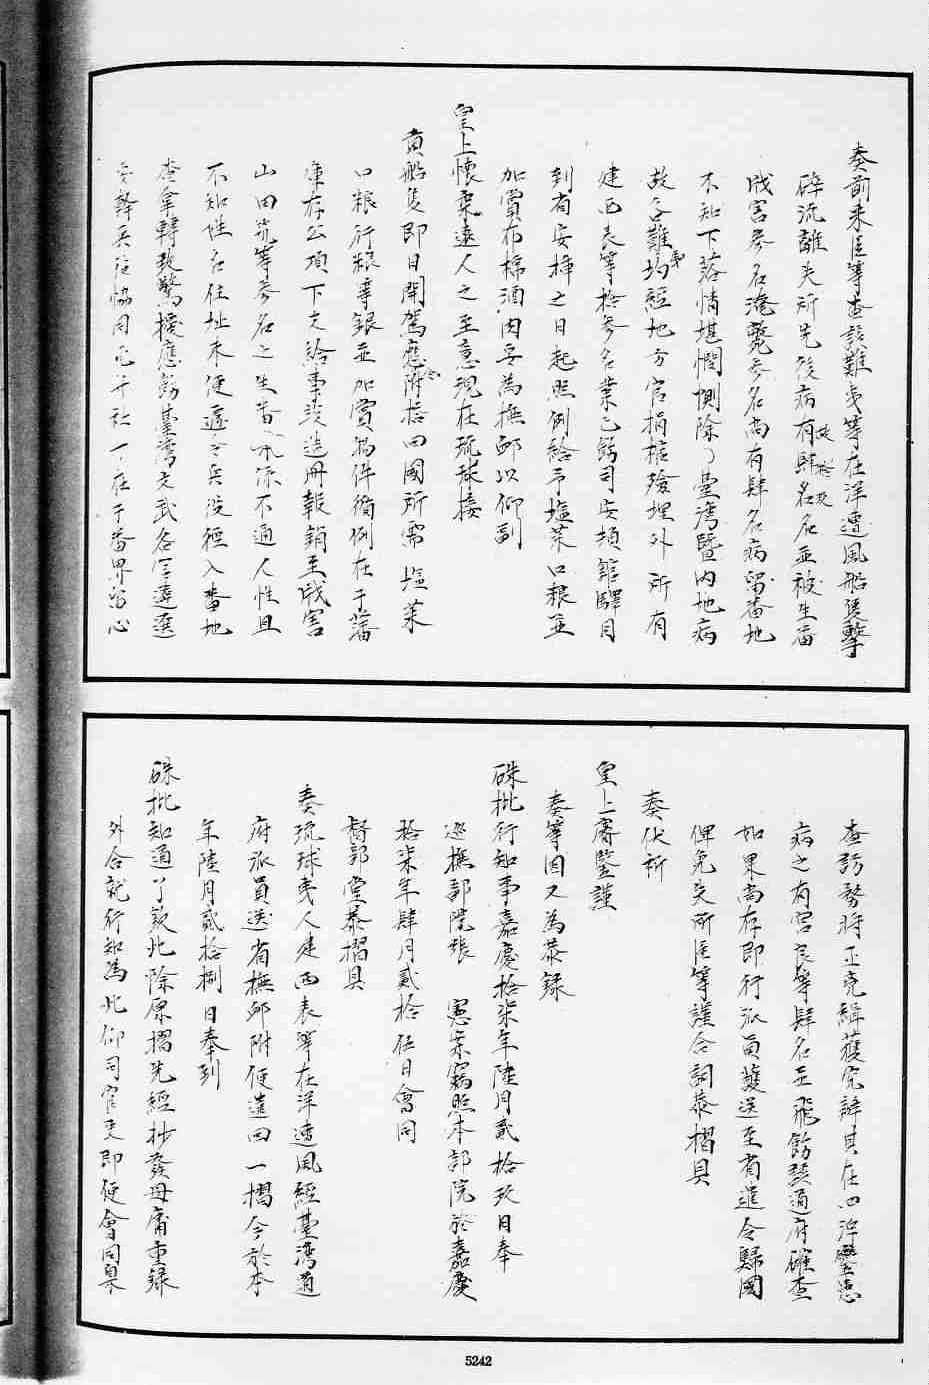 奏前來臣等查該難夷等在洋遭風船隻擊
碎流離失所先後病故有肆拾玖名名並被生番
戕害叁名淹斃叁名尚有肆名病留番地
不知下落情堪憫惻除了臺灣暨内地病
故各難夷均經地方官捐棺殮埋外所有
建西表等拾叁名業已飭司安頓館驛自
到省安揷之日起照例給予塩菜口粮並
加賞布棉酒肉妥為撫邺以仰副
皇上懷柔遠人之至意現在琉球接
貢船隻即日開駕應令附搭回國所需塩菜
口粮行粮等銀並加賞物件循例在于藩
庫存公項下支給事竣造冊報銷至戕害
山田筑等叁名之生番水深不通人性且
不知姓名住址未便遽令兵役徑入番地
查拿轉致驚擾應飭臺灣文武各官遴選
兵役協同屯千社丁在于番界留心
查訪務將正兇緝獲究辦其在山沖患
病之有宮良等肆名並飛飭該道府確查
如果尚存即行派員護送至省遣令歸國
俾免失所臣等謹合詞恭摺具
奏伏祈
皇上睿鑒謹
奏等因又為恭錄
硃批行知事嘉慶拾柒年陸月貳拾玖日奉
巡撫部院張 憲案竊照本部院於嘉慶
拾柒年肆月貳拾伍日會同
督部堂恭摺具
奏琉球夷人建西表等在洋遭風經臺灣道
府派員送省撫邺附便遣回一摺今於本
年陸月貳拾捌日奉到
硃批知道了欽此除原摺先經抄發毋庸重錄
外合就行知為此仰司官吏即便會同臬
5242